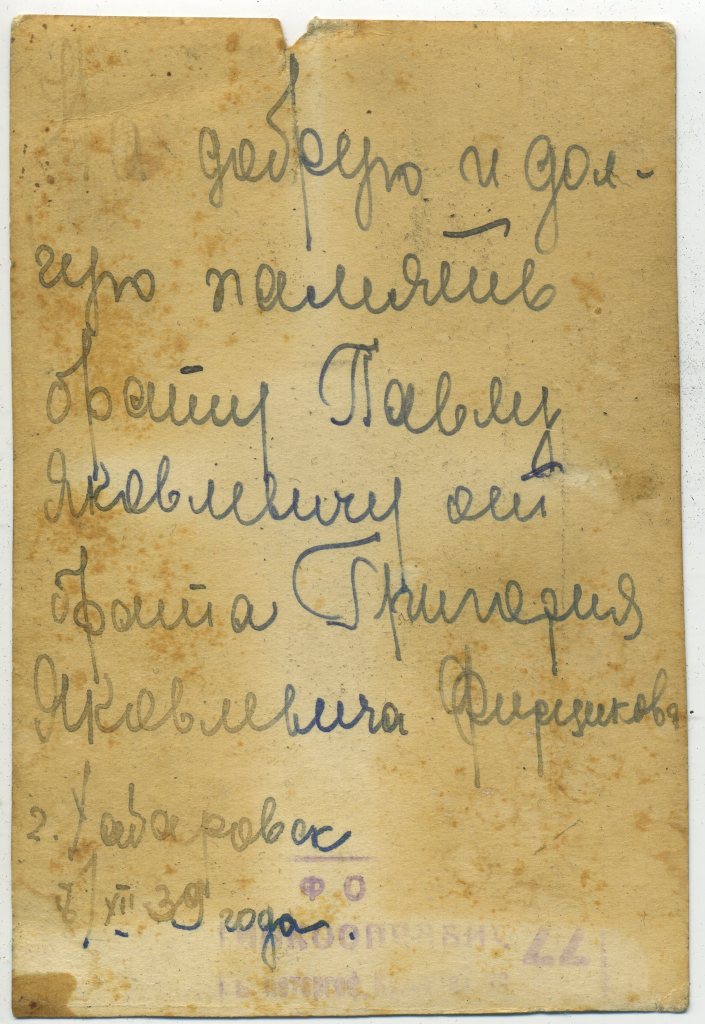 На добрую и дол-
гую память
брату Павлу
Яковлевичу от
брата Григория
Яковлевича
г. Хабаровск
XII 39 года.
ФО